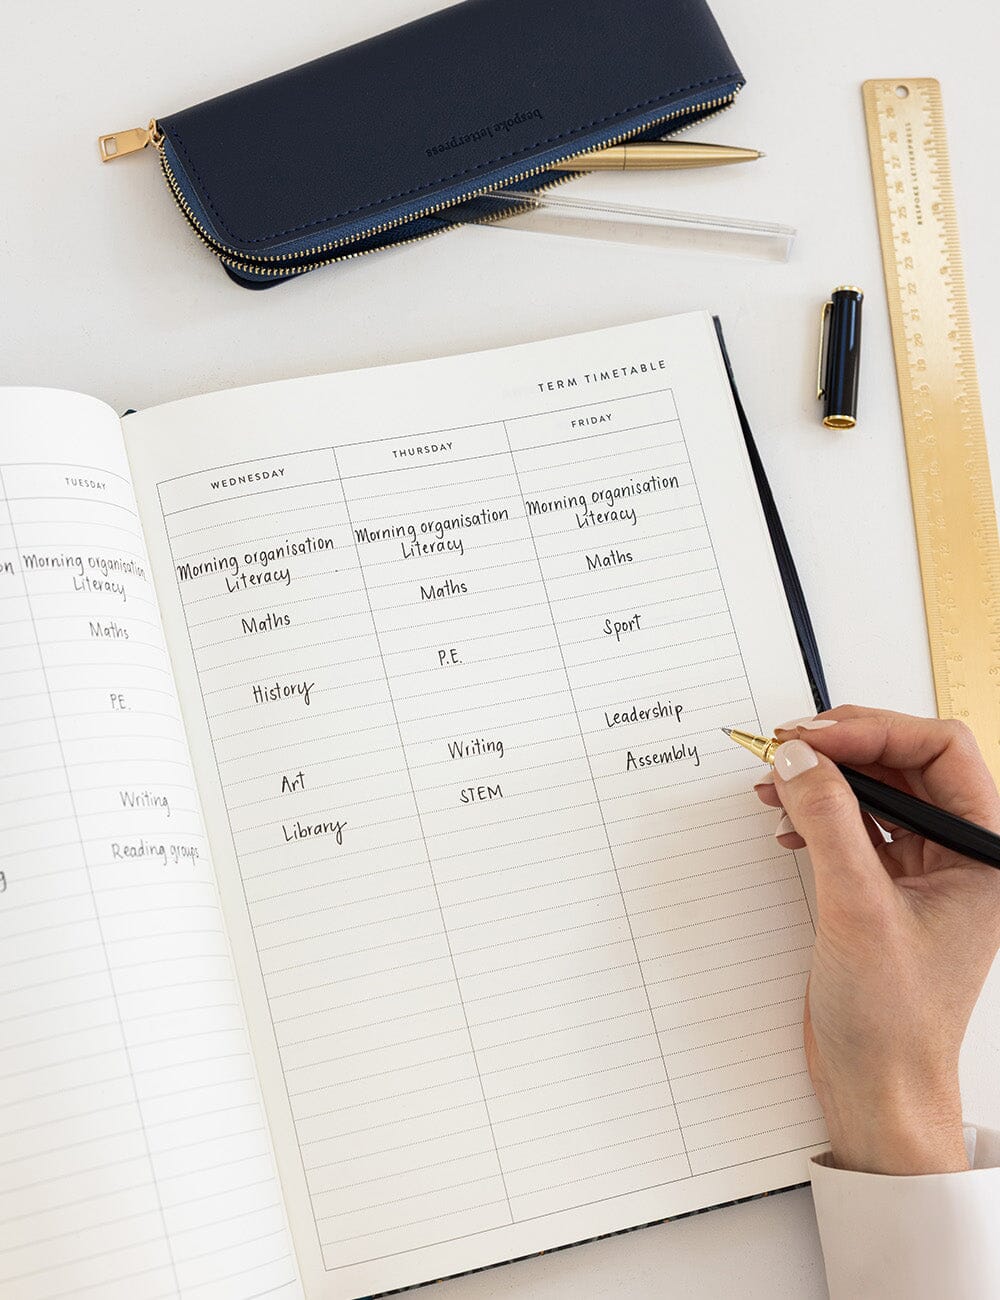 bespoke letterpress
BESPOKE LETTERPRESS
TERM TIMETABLE
TUESDAY
Morning organisation
Literacy
Maths
P.E.
Writing
Reading groups
WEDNESDAY
Morning organisation
Literacy
Maths
History
Art
Library
THURSDAY
Morning organisation
Literacy
Maths
P.E.
Writing
STEM
FRIDAY
Morning organisation
Literacy
Maths
Sport
Leadership
Assembly